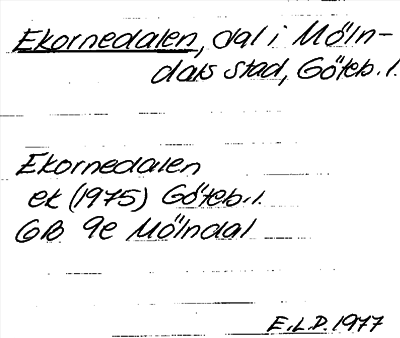 Ekornedalen, dal i Möln-
dals stad, Göteb. l.
Ekornedalen
ek (1975) Göteb. l.
GB 9e Mölndal
E.L.D. 1977